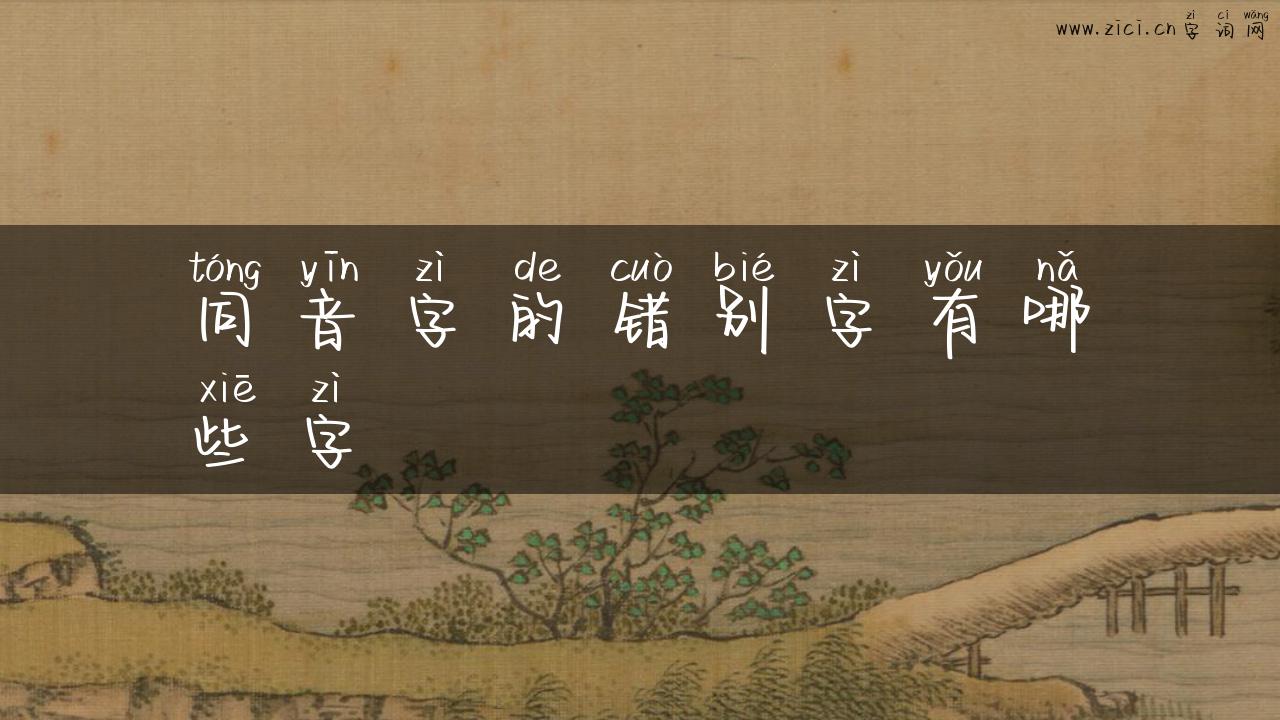 zì cí wǎng
www.zici.cn 字 词 网
tóng yīn zì de cuò bié zì yǒu nǎ
同 音 字 的 错 别 字 有 哪
xiē zì
些 字